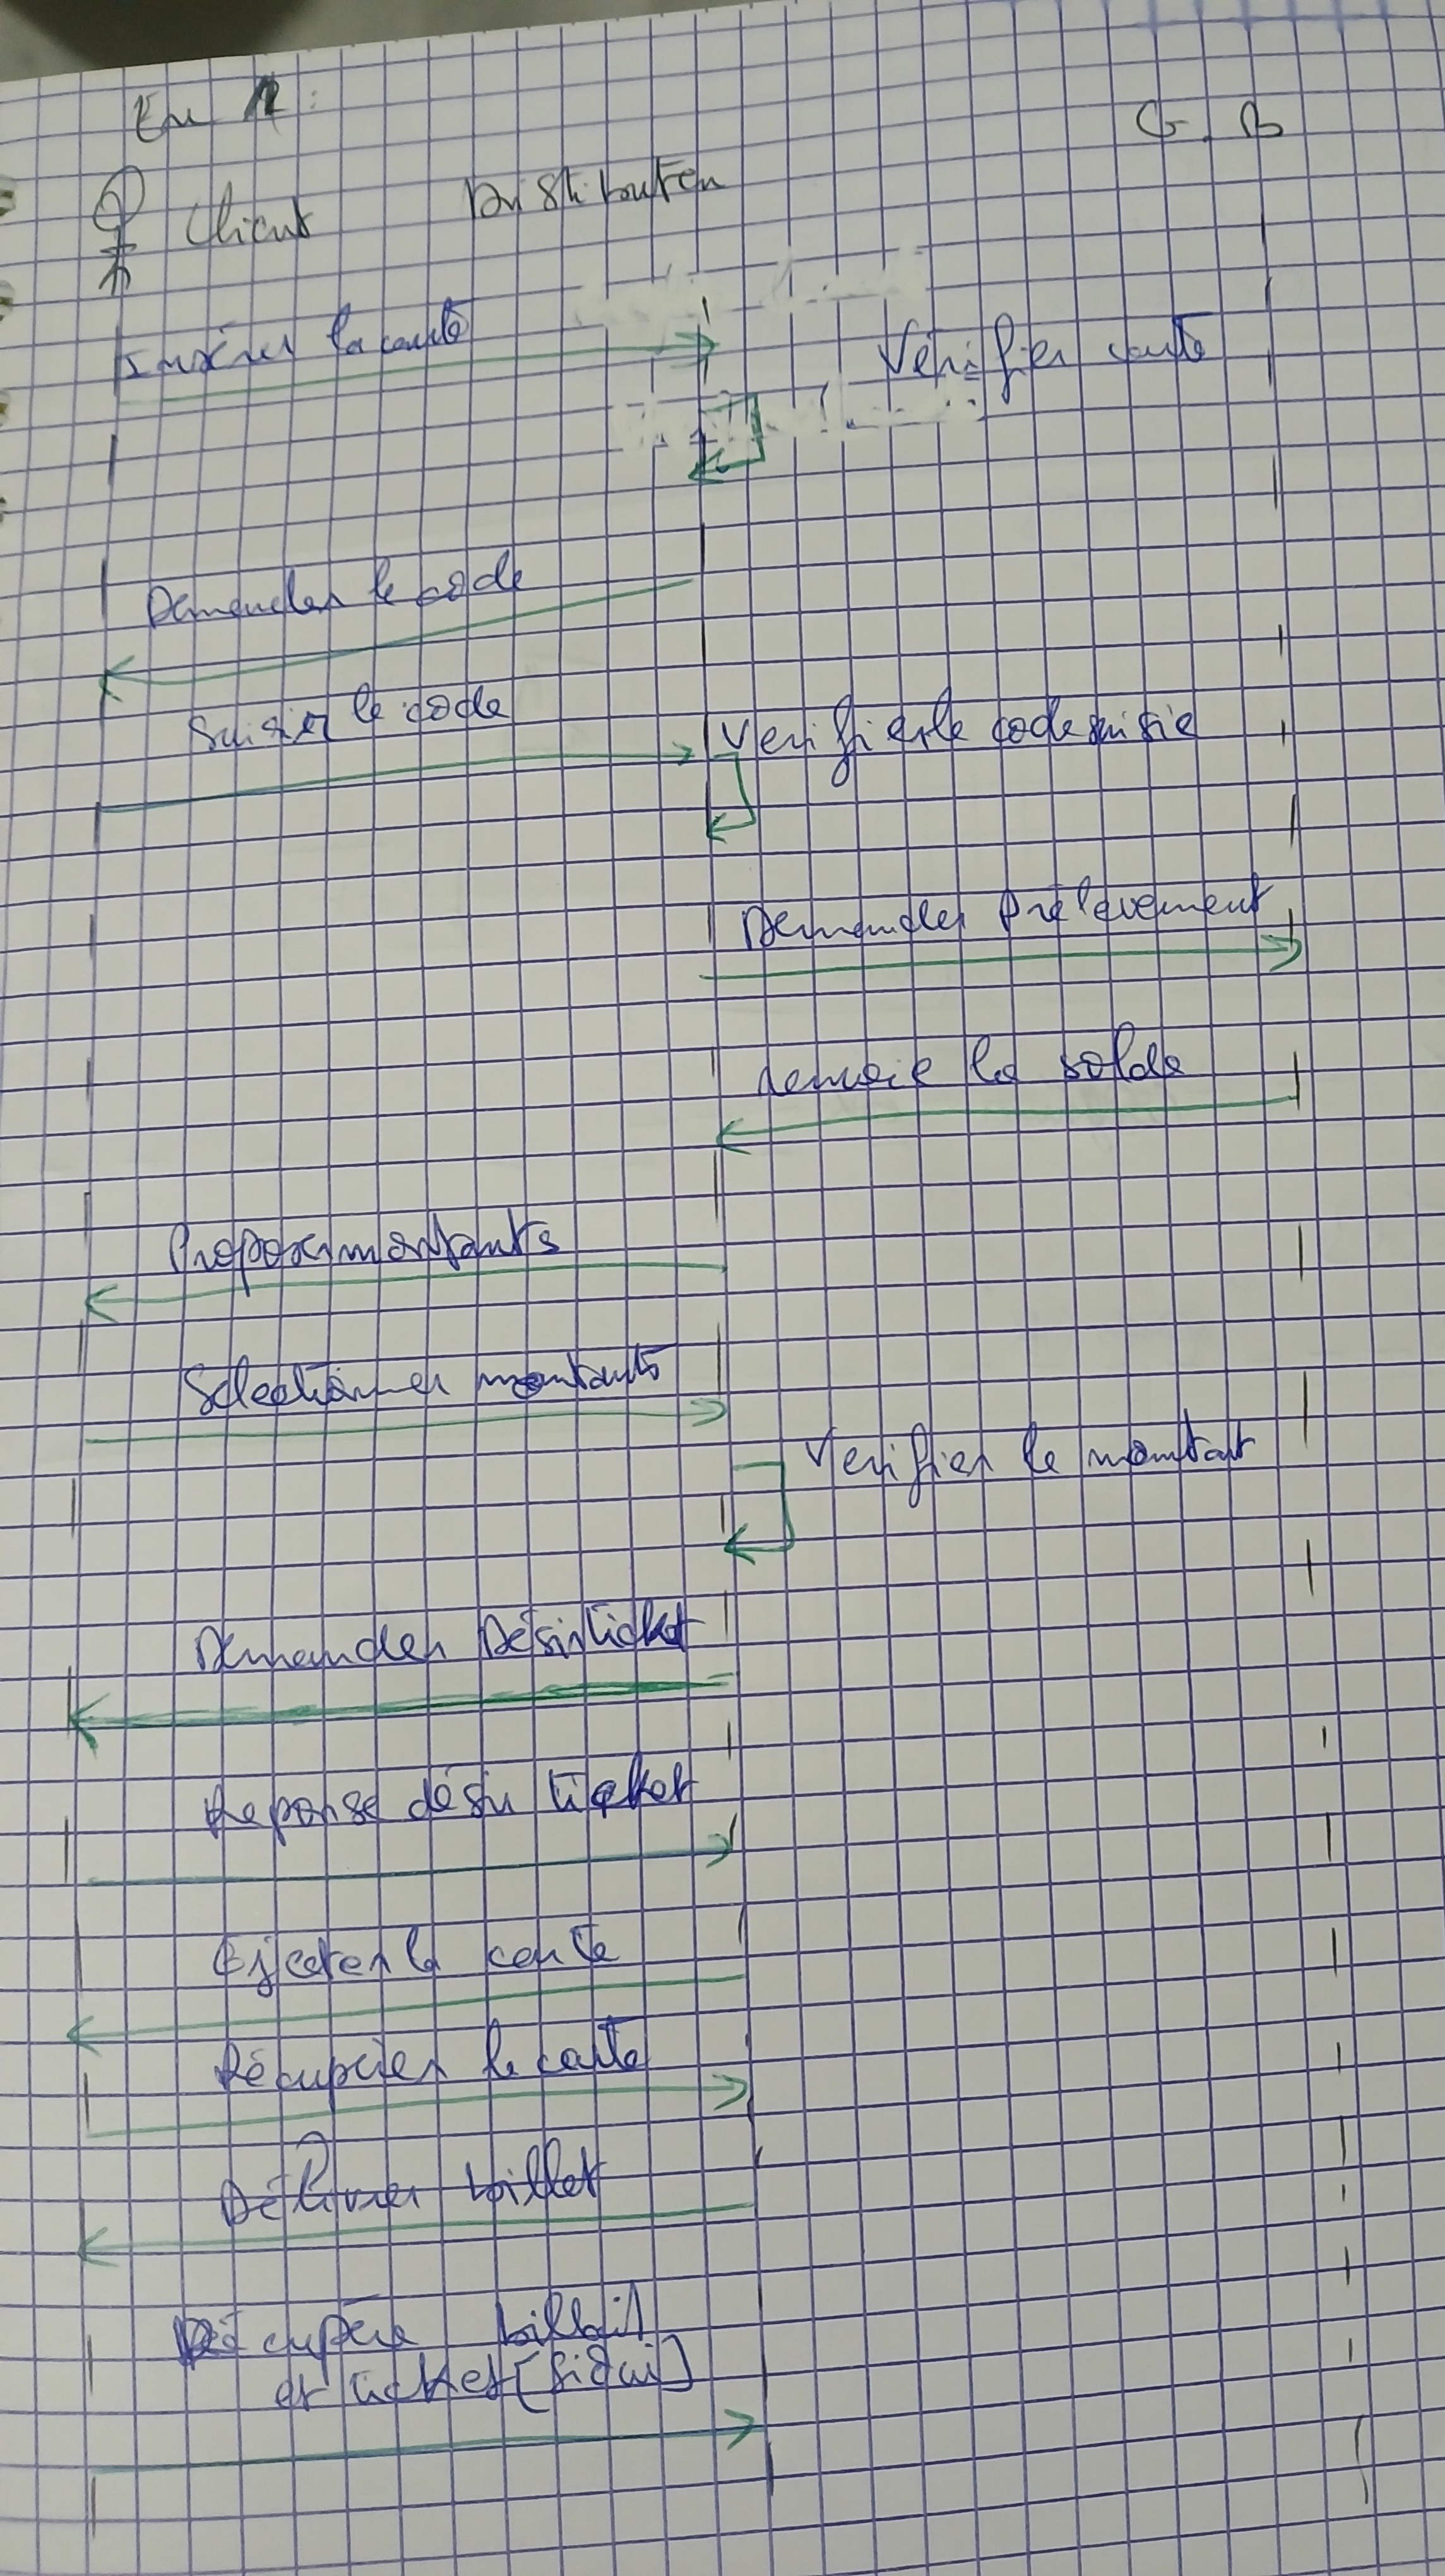 G. B
Client
Distributeu
Insérer la carte
Vérifier carte
Demander le code
Saisir le code
Verifier le code saisie
Demander Prélevement
renvoie le solde
Proposer montants
Selectionner montants
Verifier le montant
Demander Désir ticket
Reponse désir ticket
Ejecter la carte
Récupérer le carte
Délivrer billet
Récupére
et ticket [Si oui]